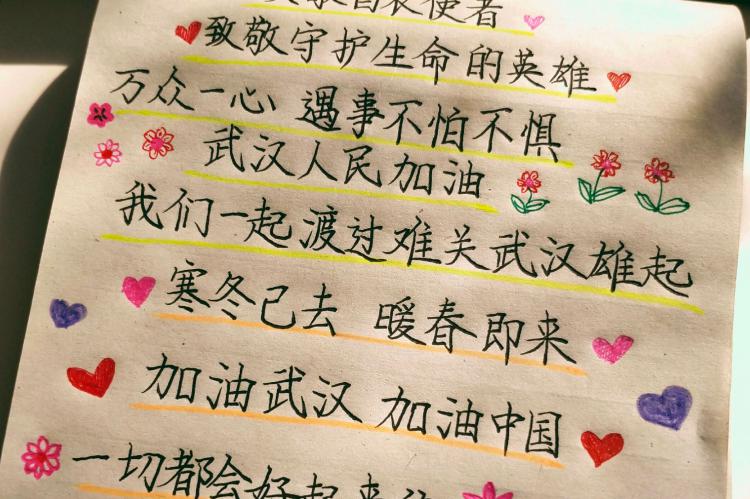 白衣使者
致敬守护生命的英雄
万众一心 遇事不怕不惧
武汉人民加油
我们一起渡过难关武汉雄起
寒冬己去 暖春即来
加油武汉 加油中国
一切都会好起来